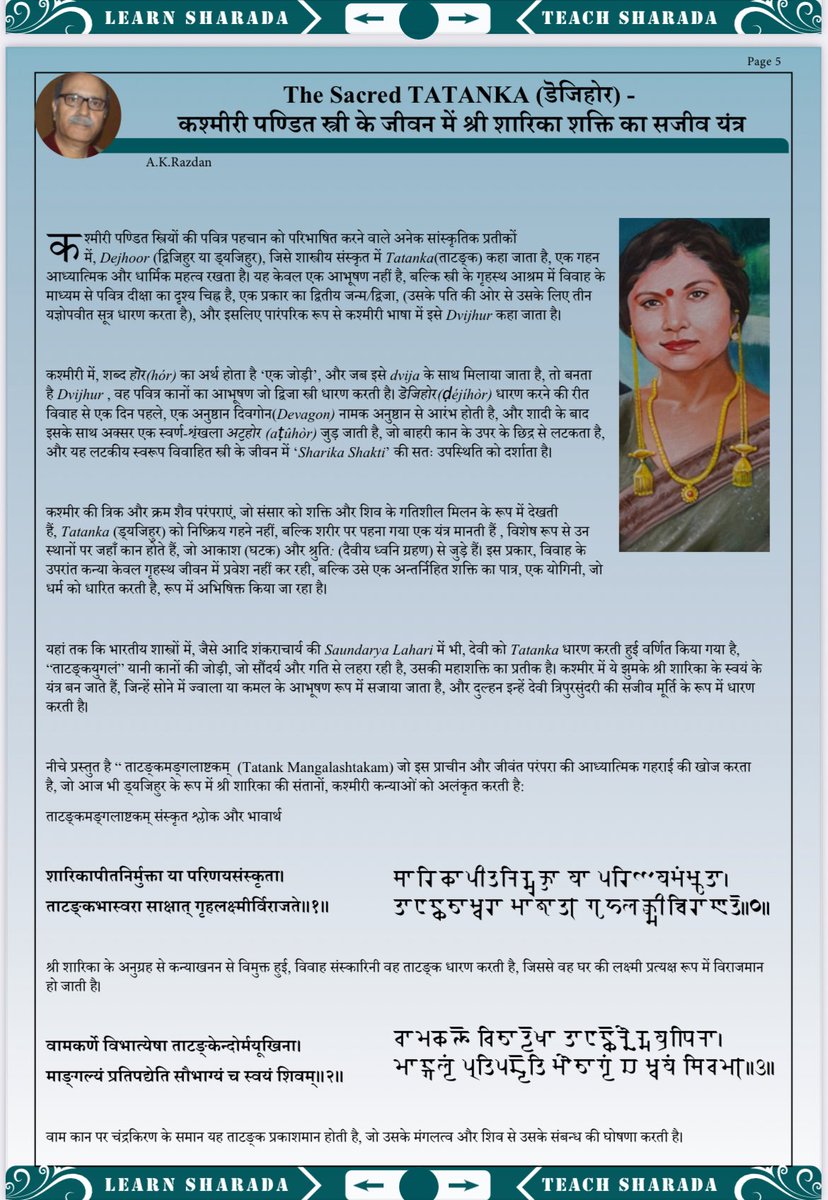 LEARN SHARADA TEACH SHARADA
Page 5
The Sacred TATANKA (डेॅजिहोर) -
कश्मीरी पण्डित स्त्री के जीवन में श्री शारिका शक्ति का सजीव यंत्र
A.K.Razdan
कश्मीरी पण्डित स्त्रियों की पवित्र पहचान को परिभाषित करने वाले अनेक सांस्कृतिक प्रतीकों
में, Dejhoor (द्विजिहुर या ड्यजिहुर), जिसे शास्त्रीय संस्कृत में Tatanka(ताटङ्क) कहा जाता है, एक गहन
आध्यात्मिक और धार्मिक महत्व रखता है। यह केवल एक आभूषण नहीं है, बल्कि स्त्री के गृहस्थ आश्रम में विवाह के
माध्यम से पवित्र दीक्षा का दृश्य चिह्न है, एक प्रकार का द्वितीय जन्म/द्विजा, (उसके पति की ओर से उसके लिए तीन
यज्ञोपवीत सूत्र धारण करता है), और इसलिए पारंपरिक रूप से कश्मीरी भाषा में इसे Dvijhur कहा जाता है।
कश्मीरी में, शब्द हॊर(hór) का अर्थ होता है ‘एक जोड़ी’, और जब इसे dvija के साथ मिलाया जाता है, तो बनता
है Dvijhur , वह पवित्र कानों का आभूषण जो द्विजा स्त्री धारण करती है। डॆजिहोर(ḍéjíhòr) धारण करने की रीत
विवाह से एक दिन पहले, एक अनुष्ठान दिवगोन(Devagon) नामक अनुष्ठान से आरंभ होती है, और शादी के बाद
इसके साथ अक्सर एक स्वर्ण-शृंखला अटॖहोर (aṭúhòr) जुड़ जाती है, जो बाहरी कान के उपर के छिद्र से लटकता है,
और यह लटकीय स्वरूप विवाहित स्त्री के जीवन में ‘Sharika Shakti’ की सतः उपस्थिति को दर्शाता है।
कश्मीर की त्रिक और क्रम शैव परंपराएं, जो संसार को शक्ति और शिव के गतिशील मिलन के रूप में देखती
हैं, Tatanka (ड्यजिहुर) को निष्क्रिय गहने नहीं, बल्कि शरीर पर पहना गया एक यंत्र मानती हैं , विशेष रूप से उन
स्थानों पर जहाँ कान होते हैं, जो आकाश (घटक) और श्रुति: (दैवीय ध्वनि ग्रहण) से जुड़े हैं। इस प्रकार, विवाह के
उपरांत कन्या केवल गृहस्थ जीवन में प्रवेश नहीं कर रही, बल्कि उसे एक अन्तर्निहित शक्ति का पात्र, एक योगिनी, जो
धर्म को धारित करती है, रूप में अभिषिक्त किया जा रहा है।
यहां तक कि भारतीय शास्त्रों में, जैसे आदि शंकराचार्य की Saundarya Lahari में भी, देवी को Tatanka धारण करती हुई वर्णित किया गया है,
“ताटङ्कयुगलं” यानी कानों की जोड़ी, जो सौंदर्य और गति से लहरा रही है, उसकी महाशक्ति का प्रतीक है। कश्मीर में ये झुमके श्री शारिका के स्वयं के
यंत्र बन जाते हैं, जिन्हें सोने में ज्वाला या कमल के आभूषण रूप में सजाया जाता है, और दुल्हन इन्हें देवी त्रिपुरसुंदरी की सजीव मूर्ति के रूप में धारण
करती है।
नीचे प्रस्तुत है “ ताटङ्कमङ्गलाष्टकम् (Tatank Mangalashtakam) जो इस प्राचीन और जीवंत परंपरा की आध्यात्मिक गहराई की खोज करता
है, जो आज भी ड्यजिहुर के रूप में श्री शारिका की संतानों, कश्मीरी कन्याओं को अलंकृत करती है:
ताटङ्कमङ्गलाष्टकम् संस्कृत श्लोक और भावार्थ
शारिकापीतनिर्मुक्ता या परिणयसंस्कृता।
ताटङ्कभास्वरा साक्षात् गृहलक्ष्मीर्विराजते॥१॥
𑆯𑆳𑆫𑆴𑆑𑆳𑆥𑆵𑆠𑆤𑆴𑆫𑇀𑆩𑆶𑆑𑇀𑆠𑆳 𑆪𑆳 𑆥𑆫𑆴𑆟𑆪𑆱𑆁𑆱𑇀𑆑𑆸𑆠𑆳𑇅
𑆠𑆳𑆛𑆕𑇀𑆑𑆨𑆳𑆱𑇀𑆮𑆫𑆳 𑆱𑆳𑆑𑇀𑆰𑆳𑆠𑇀 𑆓𑆸𑆲𑆬𑆑𑇀𑆰𑇀𑆩𑆵𑆫𑇀𑆮𑆴𑆫𑆳𑆘𑆠𑆼𑇆𑇑𑇆
श्री शारिका के अनुग्रह से कन्याखनन से विमुक्त हुई, विवाह संस्कारिनी वह ताटङ्क धारण करती है, जिससे वह घर की लक्ष्मी प्रत्यक्ष रूप में विराजमान
हो जाती है।
वामकर्णे विभात्येषा ताटङ्केन्दोर्मयूखिना।
माङ्गल्यं प्रतिपद्येति सौभाग्यं च स्वयं शिवम्॥२॥
𑆮𑆳𑆩𑆑𑆫𑇀𑆟𑆼 𑆮𑆴𑆨𑆳𑆠𑇀𑆪𑆼𑆰𑆳 𑆠𑆳𑆛𑆕𑇀𑆑𑆼𑆤𑇀𑆢𑆾𑆫𑇀𑆩𑆪𑆷𑆒𑆴𑆤𑆳𑇅
𑆩𑆳𑆕𑇀𑆓𑆬𑇀𑆪𑆁 𑆥𑇀𑆫𑆠𑆴𑆥𑆢𑇀𑆪𑆼𑆠𑆴 𑆱𑆿𑆨𑆳𑆓𑇀𑆪𑆁 𑆖 𑆱𑇀𑆮𑆪𑆁 𑆯𑆴𑆮𑆩𑇀𑇆𑇒𑇆
वाम कान पर चंद्रकिरण के समान यह ताटङ्क प्रकाशमान होती है, जो उसके मंगलत्व और शिव से उसके संबन्ध की घोषणा करती है।
LEARN SHARADA TEACH SHARADA